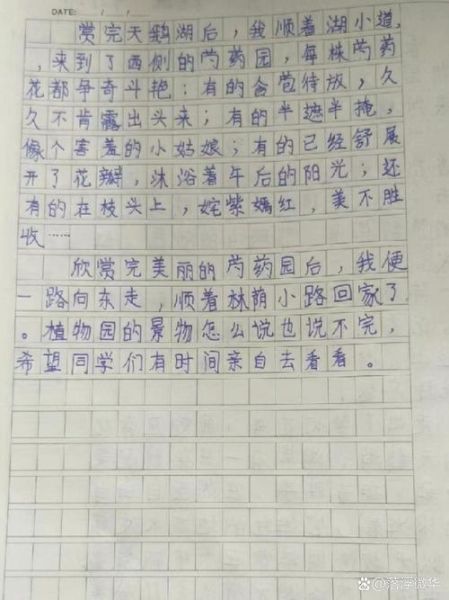 DATE: / /
赏完天鹅湖后，我顺着湖小道，
，来到了西侧的芍药园，每株芍药
花都争奇斗艳；有的含苞待放，久
久不肯露出头来；有的半遮半掩，
像个害羞的小姑娘；有的已经舒展
开了花瓣，沐浴着午后的阳光；还
有的在枝头上，姹紫嫣红，美不胜
收……
欣赏完美丽的芍药园后，我便
一路向东走，顺着林荫小路回家了
。植物园的景物怎么说也说不完，
希望同学们有时间亲自去看看。